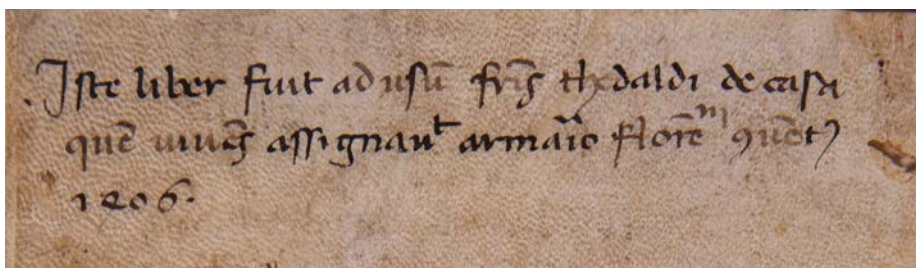 Iste liber fuit ad usū fr̄is thedaldi de casa
quē uiuēs assignauͭ armario floreⁿⁱ ꝯuēt
1406.